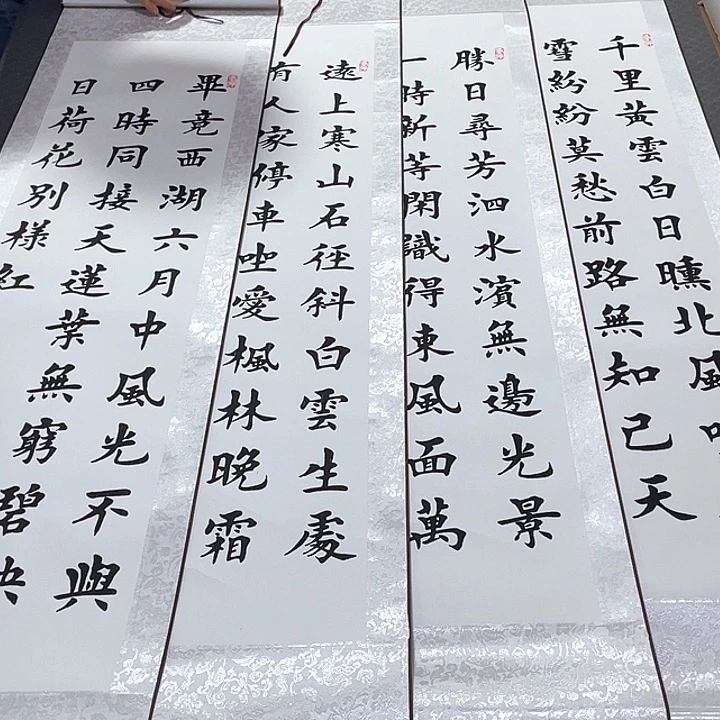 千里黃雲白日曛北風
雪紛紛莫愁前路無知己天
勝日尋芳泗水濱無邊光景
一時新等閑識得東風面萬
遠上寒山石径斜白雲生處
有人家停車坐愛楓林晚霜
畢竟西湖六月中風光不與
四時同接天蓮葉無窮碧映
日荷花別樣紅